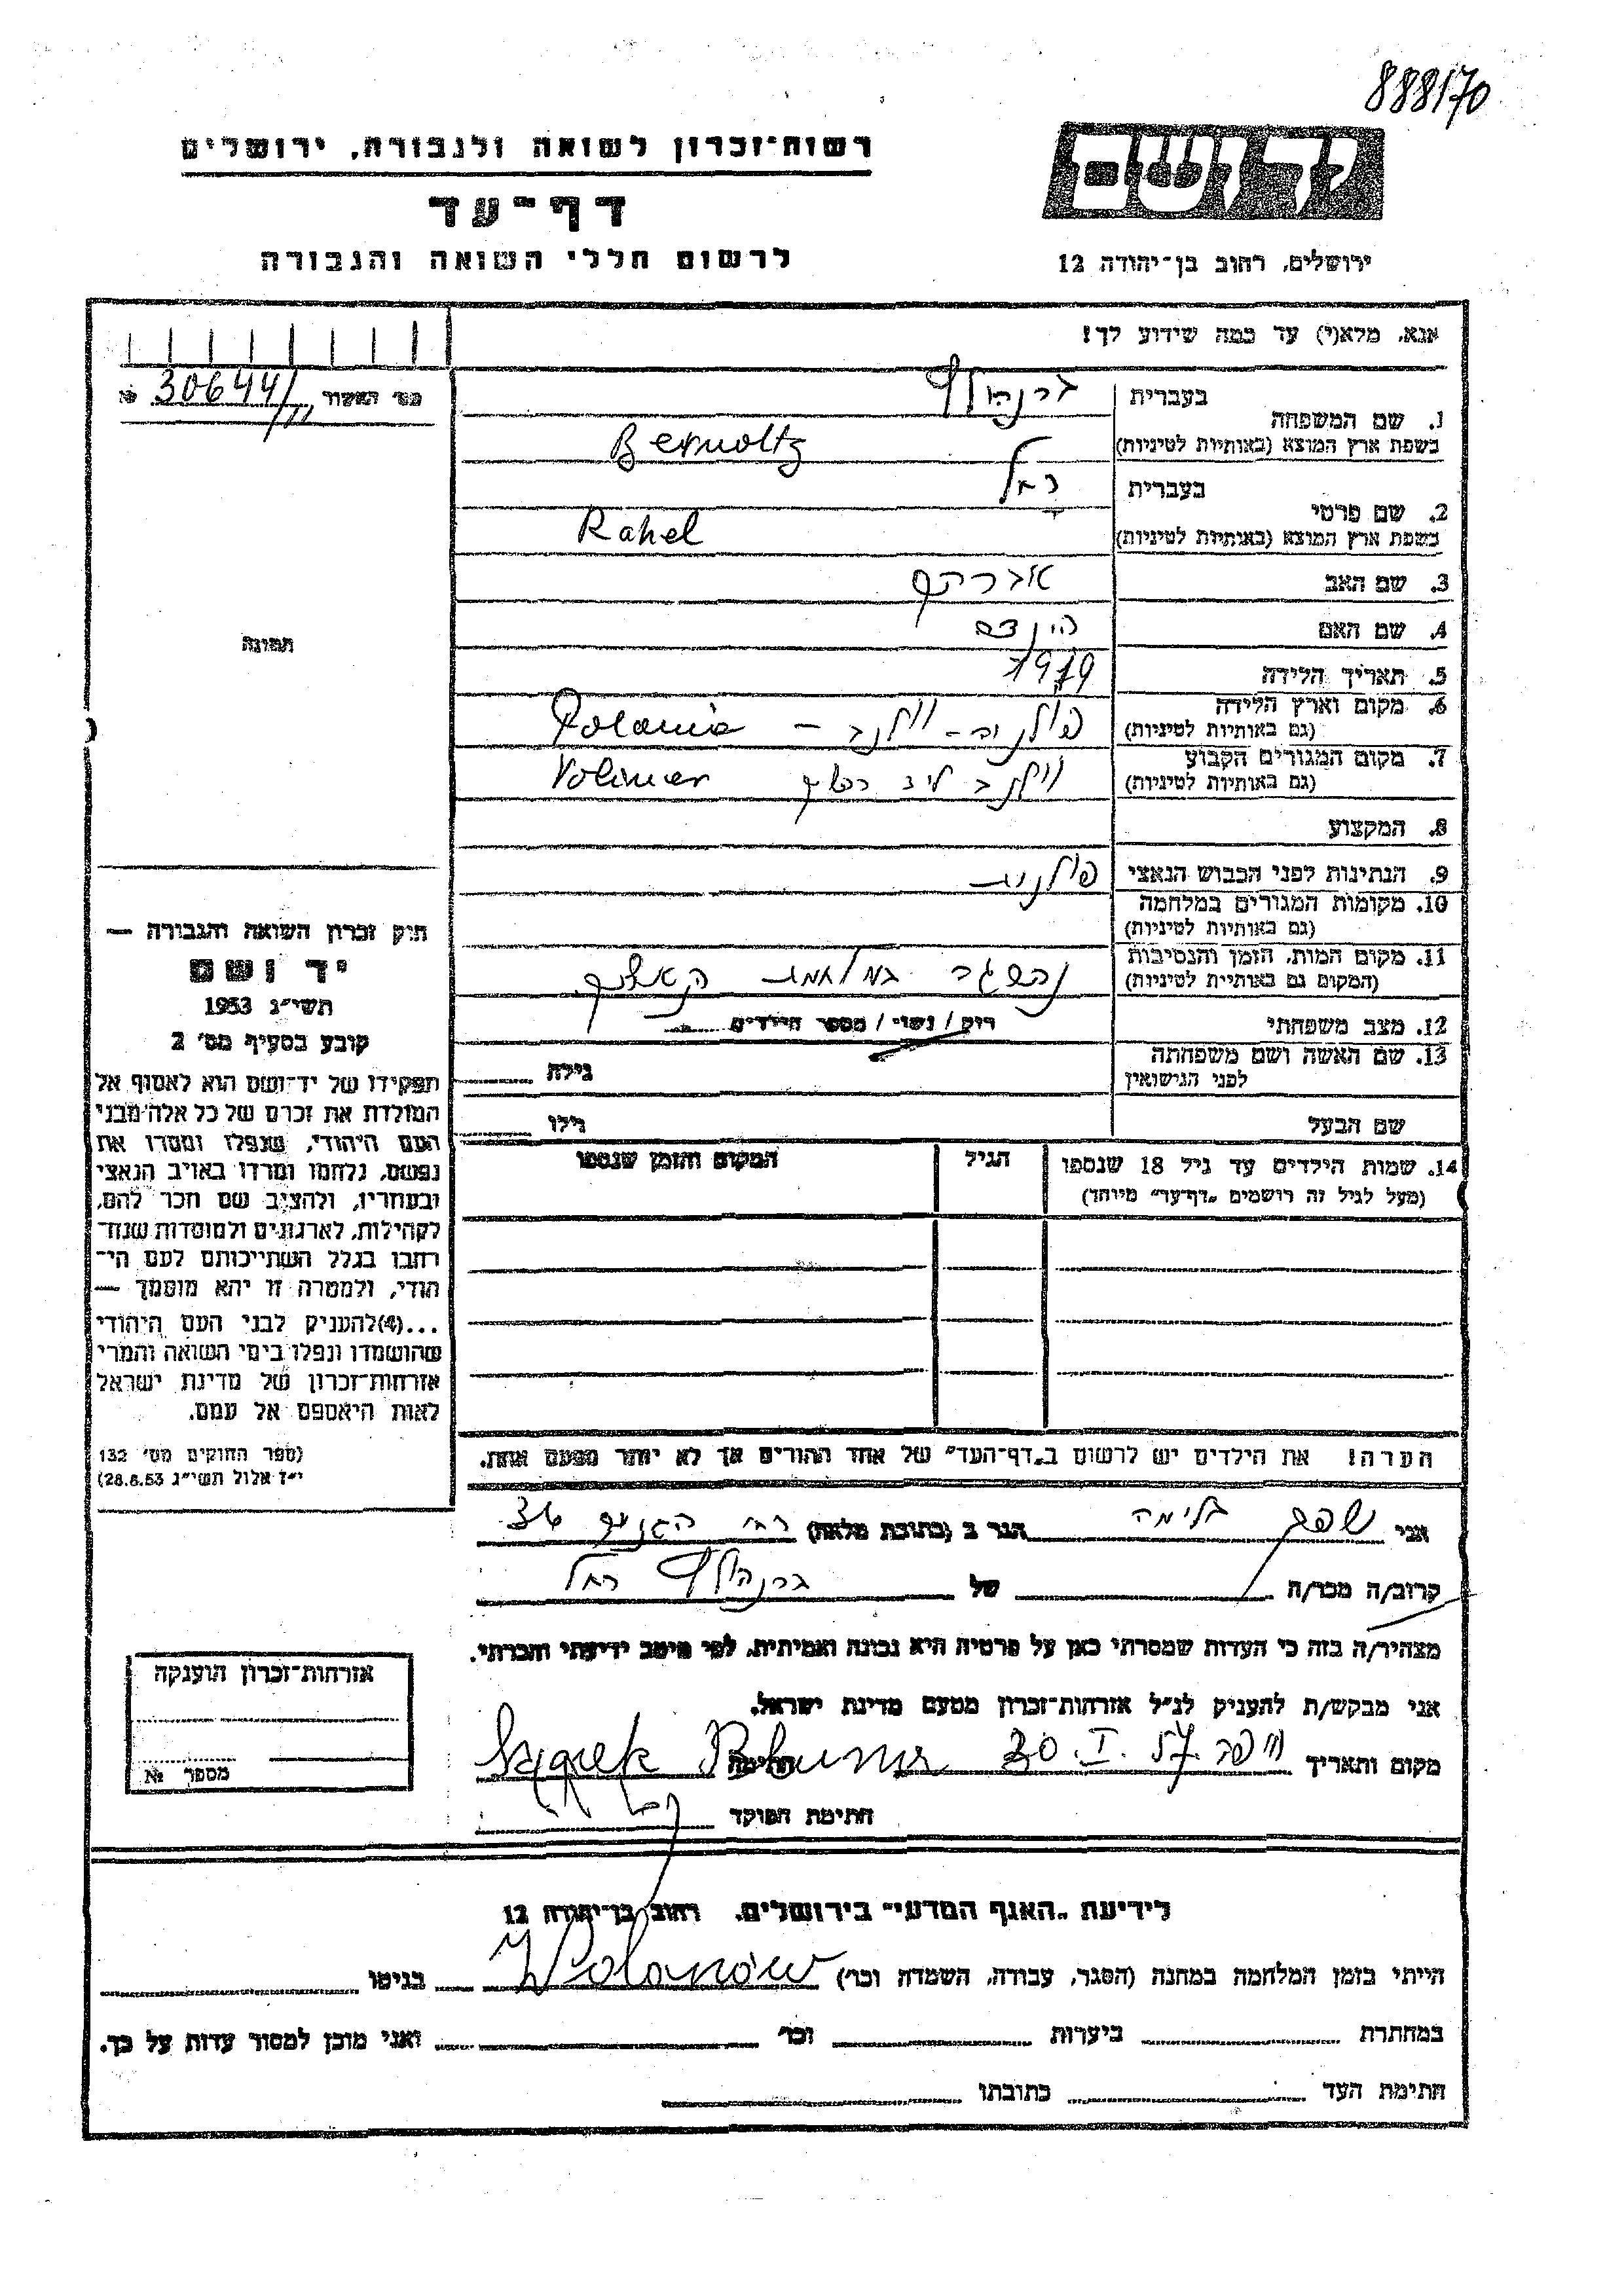 888170
רשות־זכרון לשואה ולגבורה, ירושלים
יד ושם
דף־עד
לרשום חללי השואה והגבורה
ירושלים, רחוב בן־יהודה 12
אנא, מלא(י) עד כמה שידוע לך!
30644/II №
1. שם המשפחה
בעברית ברנהולץ
בשפת ארץ המוצא (באותיות לטיניות) Bernoltz
2. שם פרטי
בעברית רחל
בשפת ארץ המוצא (באותיות לטיניות) Rahel
3. שם האב אברהם
4. שם האם הינדה
5. תאריך הלידה
6. מקום וארץ הלידה
(גם באותיות לטיניות) פולניה - Polania
7. מקום המגורים הקבוע
(גם באותיות לטיניות) ליד
8. המקצוע
9. הנתינות לפני הכבוש הנאצי פולנית
10. מקומות המגורים במלחמה
(גם באותיות לטיניות)
11. מקום המות, הזמן והנסיבות
(המקום גם באותיות לטיניות) נהרגה במלחמת
12. מצב משפחתי רוק / נשוי / מספר הילדים
13. שם האשה ושם משפחתה
לפני הנישואין גילה
שם הבעל גילו
14. שמות הילדים עד גיל 18 שנספו הגיל המקום והזמן שנספו
(מעל לגיל זה רושמים "דף־עד" מיוחד)
הערה! את הילדים יש לרשום ב"דף־העד" של אחד ההורים אך לא יותר מפעם אחת.
תמונה
חוק זכרון השואה והגבורה —
יד ושם
תשי"ג 1953
קובע בסעיף מס' 2
תפקידו של יד־ושם הוא לאסוף אל
המולדת את זכרם של כל אלה מבני
העם היהודי, שנפלו ומסרו את
נפשם, נלחמו ומרדו באויב הנאצי
ובעוזריו, ולהציב שם וזכר להם,
לקהילות, לארגונים ולמוסדות שנח־
רבו בגלל השתייכותם לעם הי־
הודי, ולמטרה זו יהא מוסמך —
...(4)להעניק לבני העם היהודי
שהושמדו ונפלו בימי השואה והמרי
אזרחות־זכרון של מדינת ישראל
לאות היאספם אל עמם.
(ספר החוקים מס' 132
י"ז אלול תשי"ג 28.8.53)
אני בלומה הגר ב (כתובת מלאה) רח' 36
קרוב/ה מכר/ה של ברנהולץ רחל
מצהיר/ה בזה כי העדות שמסרתי כאן על פרטיה היא נכונה ואמיתית, לפי מיטב ידיעתי והכרתי.
אני מבקש/ת להעניק לנ"ל אזרחות־זכרון מטעם מדינת ישראל.
מקום ותאריך חיפה 30.I.57 חתימה
חתימת הפוקד
אזרחות־זכרון הוענקה
מספר №
לידיעת "האגף המדעי" בירושלים, רחוב בן־יהודה 12
הייתי בזמן המלחמה במחנה (הסגר, עבודה, השמדה וכר') Wolanów בגיטו
במחתרת ביערות וכר' ואני מוכן למסור עדות על כך.
חתימת העד כתובתו